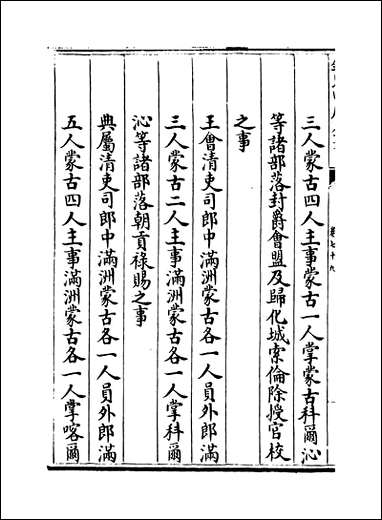 三人蒙古四人主事蒙古一人掌蒙古科爾沁
等諸部落封爵會盟及歸化城索倫除授官校
之事
王會清吏司郎中滿洲蒙古各一人員外郎滿
三人蒙古二人主事滿洲蒙古各一人掌科爾
沁等諸部落朝貢祿賜之事
典屬清吏司郎中滿洲蒙古各一人員外郎滿
五人蒙古四人主事滿洲蒙古各一人掌喀爾